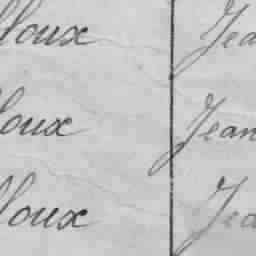 lloux Jea
loux Jean
lloux Jea